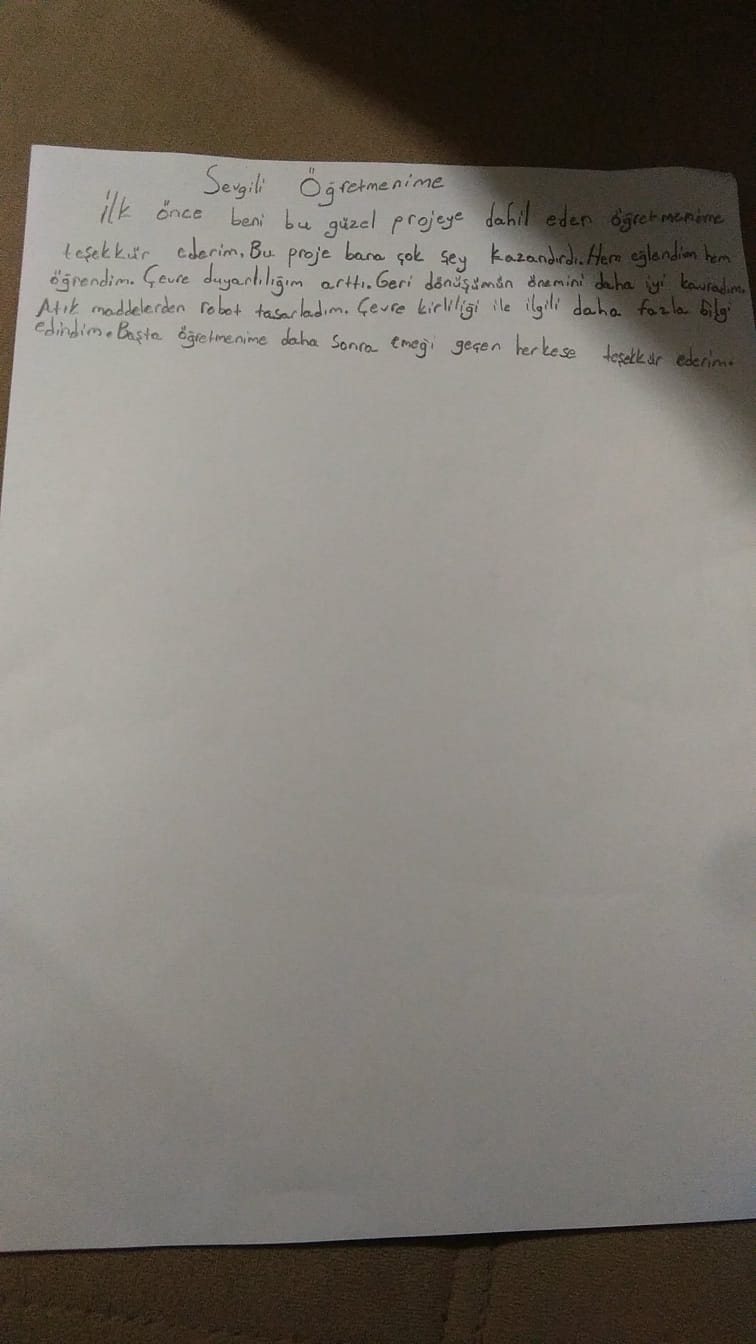 Sevgili Öğretmenime
İlk önce beni bu güzel projeye dahil eden öğretmenime
teşekkür ederim. Bu proje bana çok şey kazandırdı. Hem eğlendim hem
öğrendim. Çevre duyarlılığım arttı. Geri dönüşümün önemini daha iyi kavradım.
Atık maddelerden robot tasarladım. Çevre kirliliği ile ilgili daha fazla bilgi
edindim. Başta öğretmenime daha sonra emeği geçen herkese teşekkür ederim.